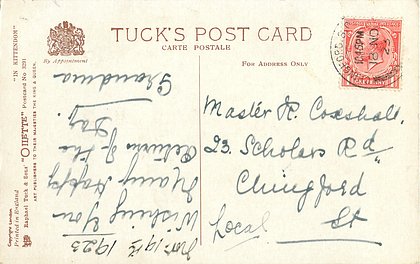 TUCK'S POST CARD
CARTE POSTALE
By Appointment
FOR ADDRESS ONLY
Nov 19th 1923
Wishing You
Many Happy
Returns of the
Day.
Grandma
Master R. Coxshall
23. Scholars Rd
Chingford
Local
"IN KITTENDOM"
Raphael Tuck & Sons' "OILETTE" Postcard No. 3291
ART PUBLISHERS TO THEIR MAJESTIES THE KING & QUEEN.
Copyright London.
Printed in England